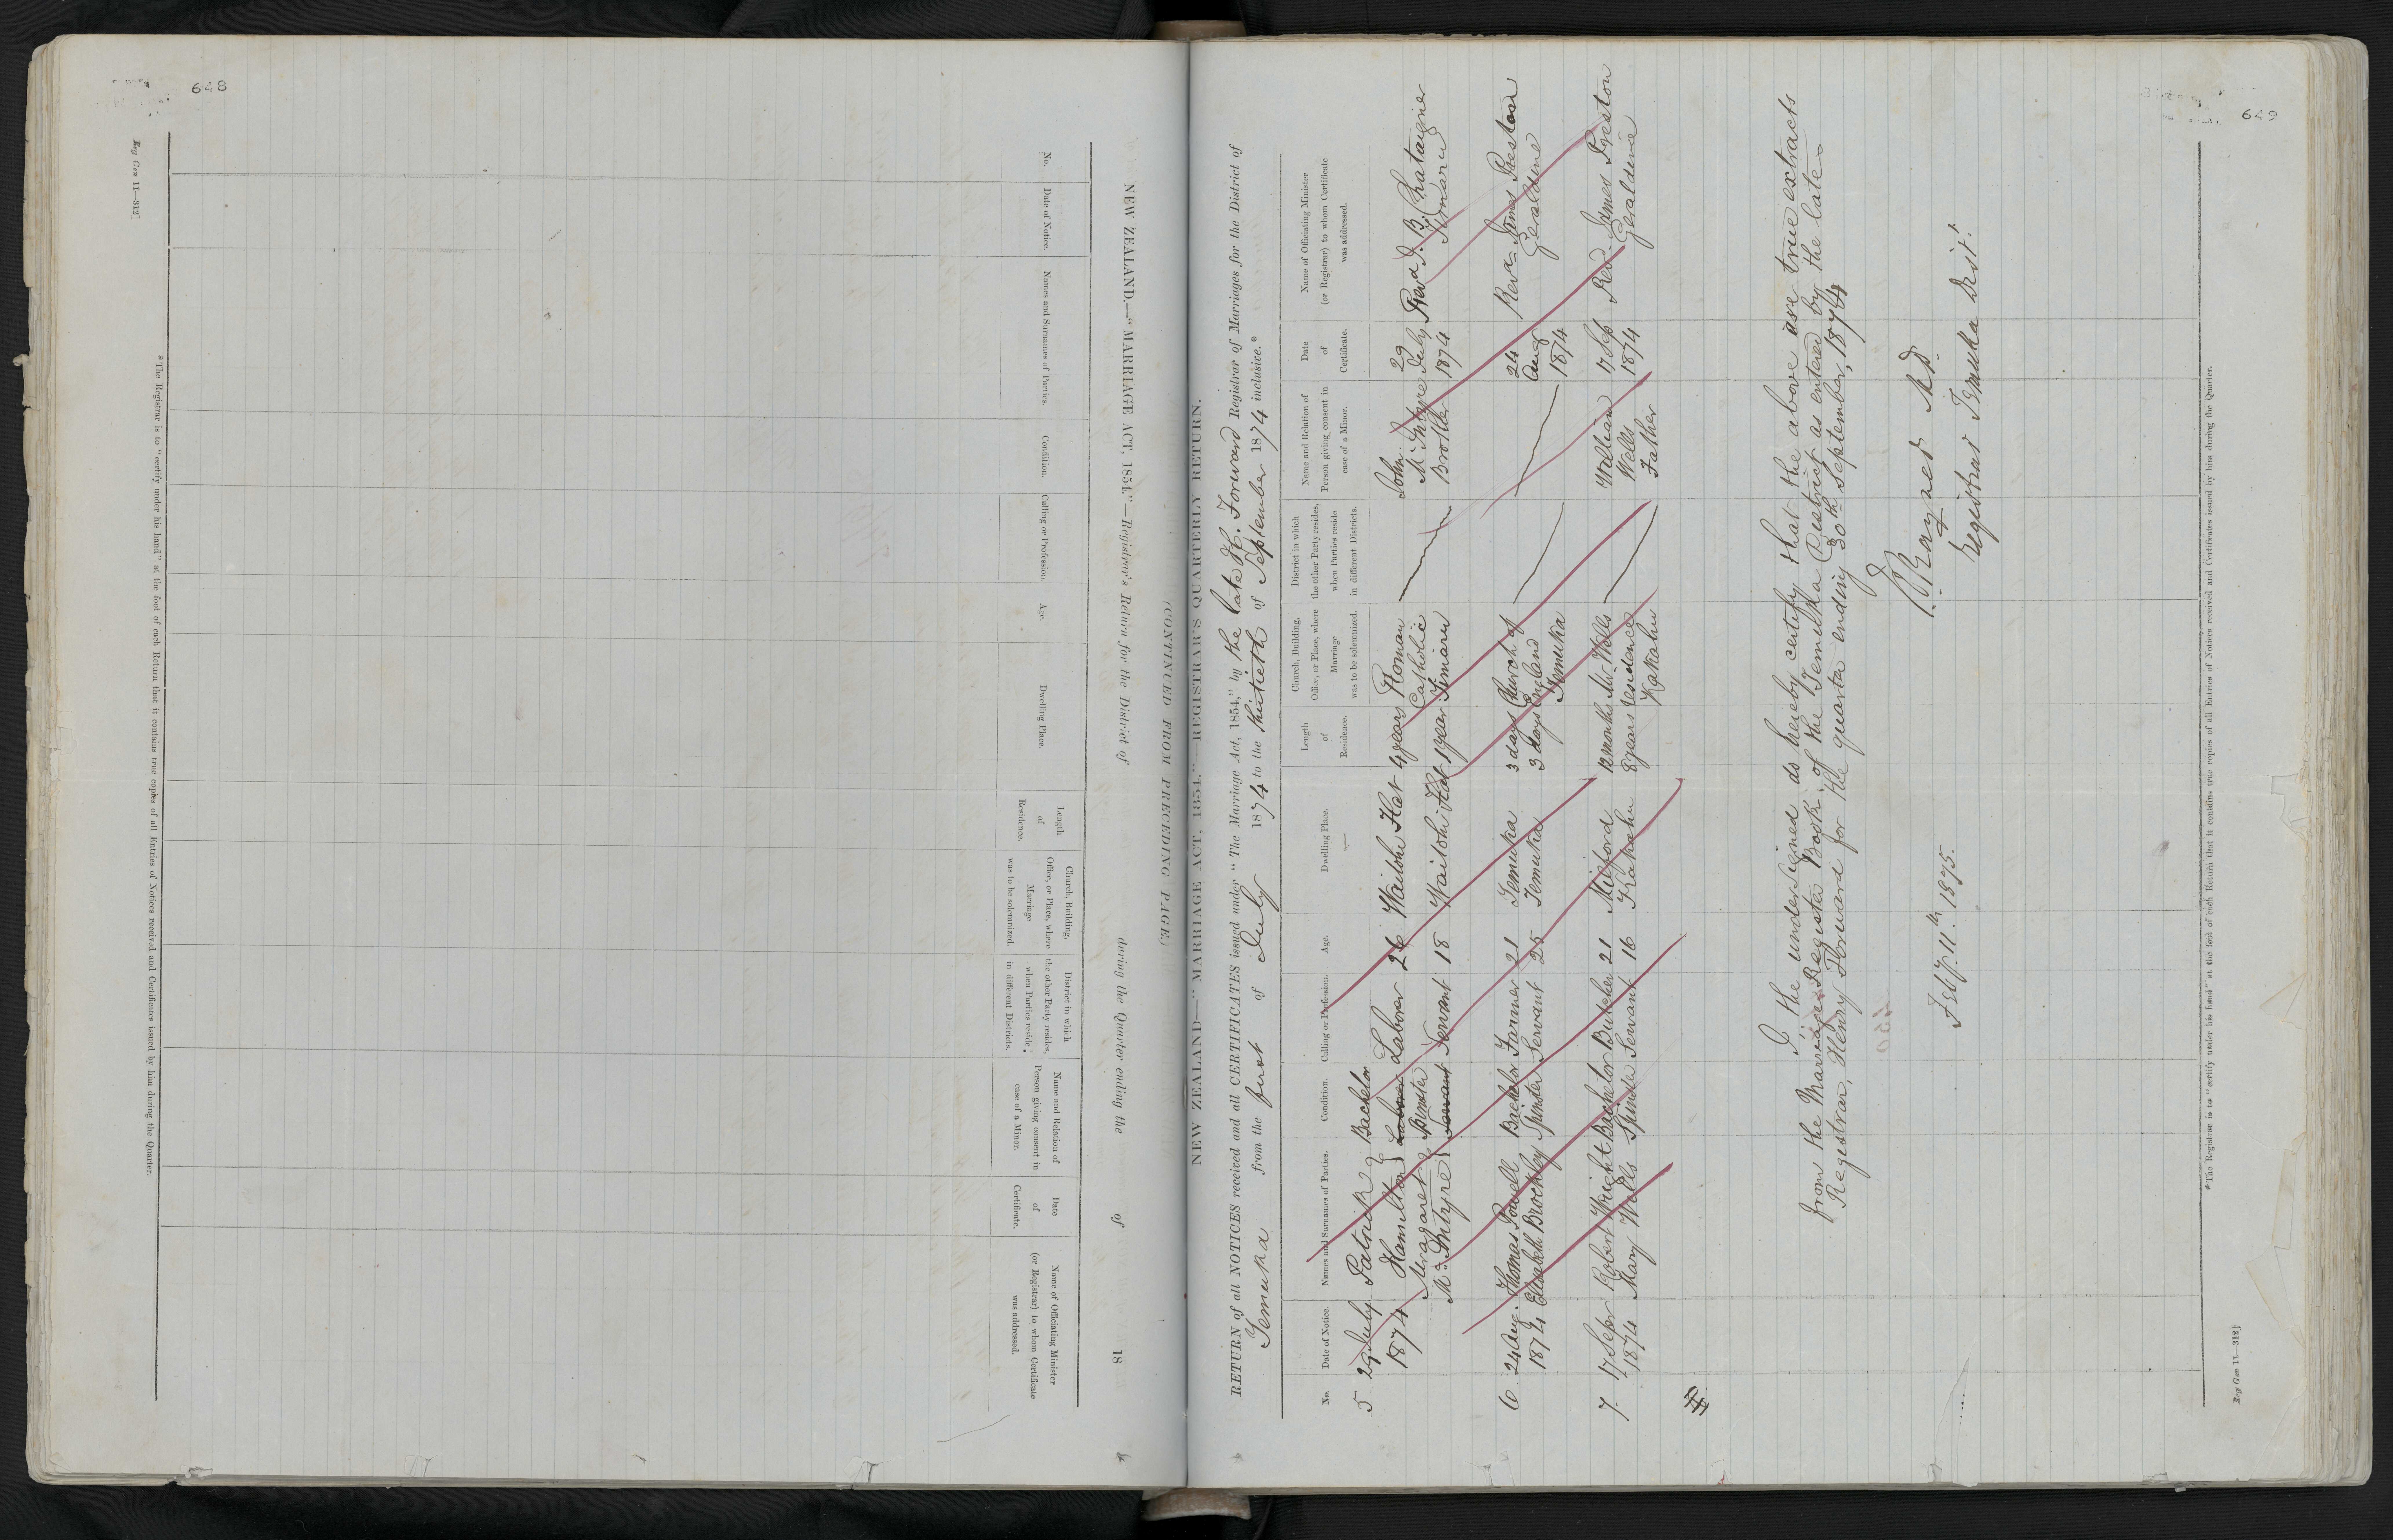 628
NEW ZEALAND.—"MARRIAGE ACT, 1854."—Registrar's Return for the District of during the Quarter ending the of 18
(CONTINUED FROM PRECEDING PAGE.)
No.
Date of Notice.
Names and Surnames of Parties.
Condition.
Calling or Profession.
Age.
Dwelling Place.
Length
of
Residence.
Church, Building,
Office, or Place, where
Marriage
was to be solemnized.
District in which
the other Party resides,
when Parties reside
in different Districts.
Name and Relation of
Person giving consent in
case of a Minor.
Date
of
Certificate.
Name of Officiating Minister
(or Registrar) to whom Certificate
was addressed.
*The Registrar is to "certify under his hand" at the foot of each Return that it contains true copies of all Entries of Notices received and Certificates issued by him during the Quarter.
Reg Gen 11—312]
NEW ZEALAND—"MARRIAGE ACT, 1854."—REGISTRAR'S QUARTERLY RETURN.
RETURN of all NOTICES received and all CERTIFICATES issued under "The Marriage Act, 1854," by the late H. Forward Registrar of Marriages for the District of
Temuka from the first of July 1874 to the thirtieth of September 1874 inclusive.*
No.
Date of Notice.
Names and Surnames of Parties.
Condition.
Calling or Profession.
Age.
Dwelling Place.
Length
of
Residence.
Church, Building,
Office, or Place, where
Marriage
was to be solemnized.
District in which
the other Party resides,
when Parties reside
in different Districts.
Name and Relation of
Person giving consent in
case of a Minor.
Date
of
Certificate.
Name of Officiating Minister
(or Registrar) to whom Certificate
was addressed.
5 29 July Patrick } Bachelor John 29
1874 Hamilton } Laborer Laborer 26 Waitohi Flat 4 years Roman McIntyre July Revd J. B. Chataigner
Margaret } Spinster Catholic Brother 1874 Timaru
McIntyre } Servant Servant 18 Waitohi Flat 1 year Timaru
6 24 Aug. Thomas Powell Bachelor Farmer 21 Temuka 3 days Church of 24 Revd James Preston
1874 Elizabeth Brockley Spinster Servant 25 Temuka 3 days England Aug Geraldine
Temuka 1874
7. 17 Sepr Robert Wright Bachelor Butcher 21 Milford 12 months Mr. Wells William 17 Sep Revd. James Preston
1874 Mary Wells Spinster Servant 16 Kakahu 8 years residence Wells 1874 Geraldine
Kakahu Father
I, the undersigned do hereby certify that the above are true extracts
from the Marriage Register Book of the Temuka District as entered by the late
Registrar, Henry Forward for the quarter ending 30th September, 1874
Rayner M.D.
Registrar Temuka Dist.
Feby. 11th 1875.
*The Registrar is to "certify under his hand" at the foot of each Return that it contains true copies of all Entries of Notices received and Certificates issued by him during the Quarter.
Reg Gen 11—312]